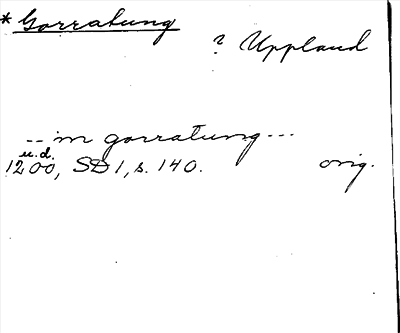 * Gorratung
? Uppland
-- in gorratung---
u.d.
1200, SD 1, s. 140. orig.